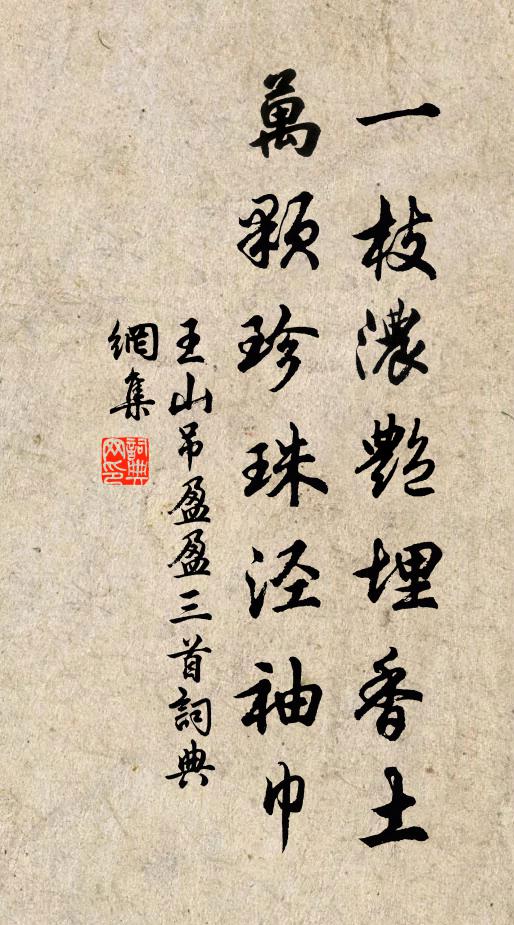 一枝濃艷埋香土
萬顆珍珠泾袖巾
王山吊盈盈三首詞典
網集
詞典
网印